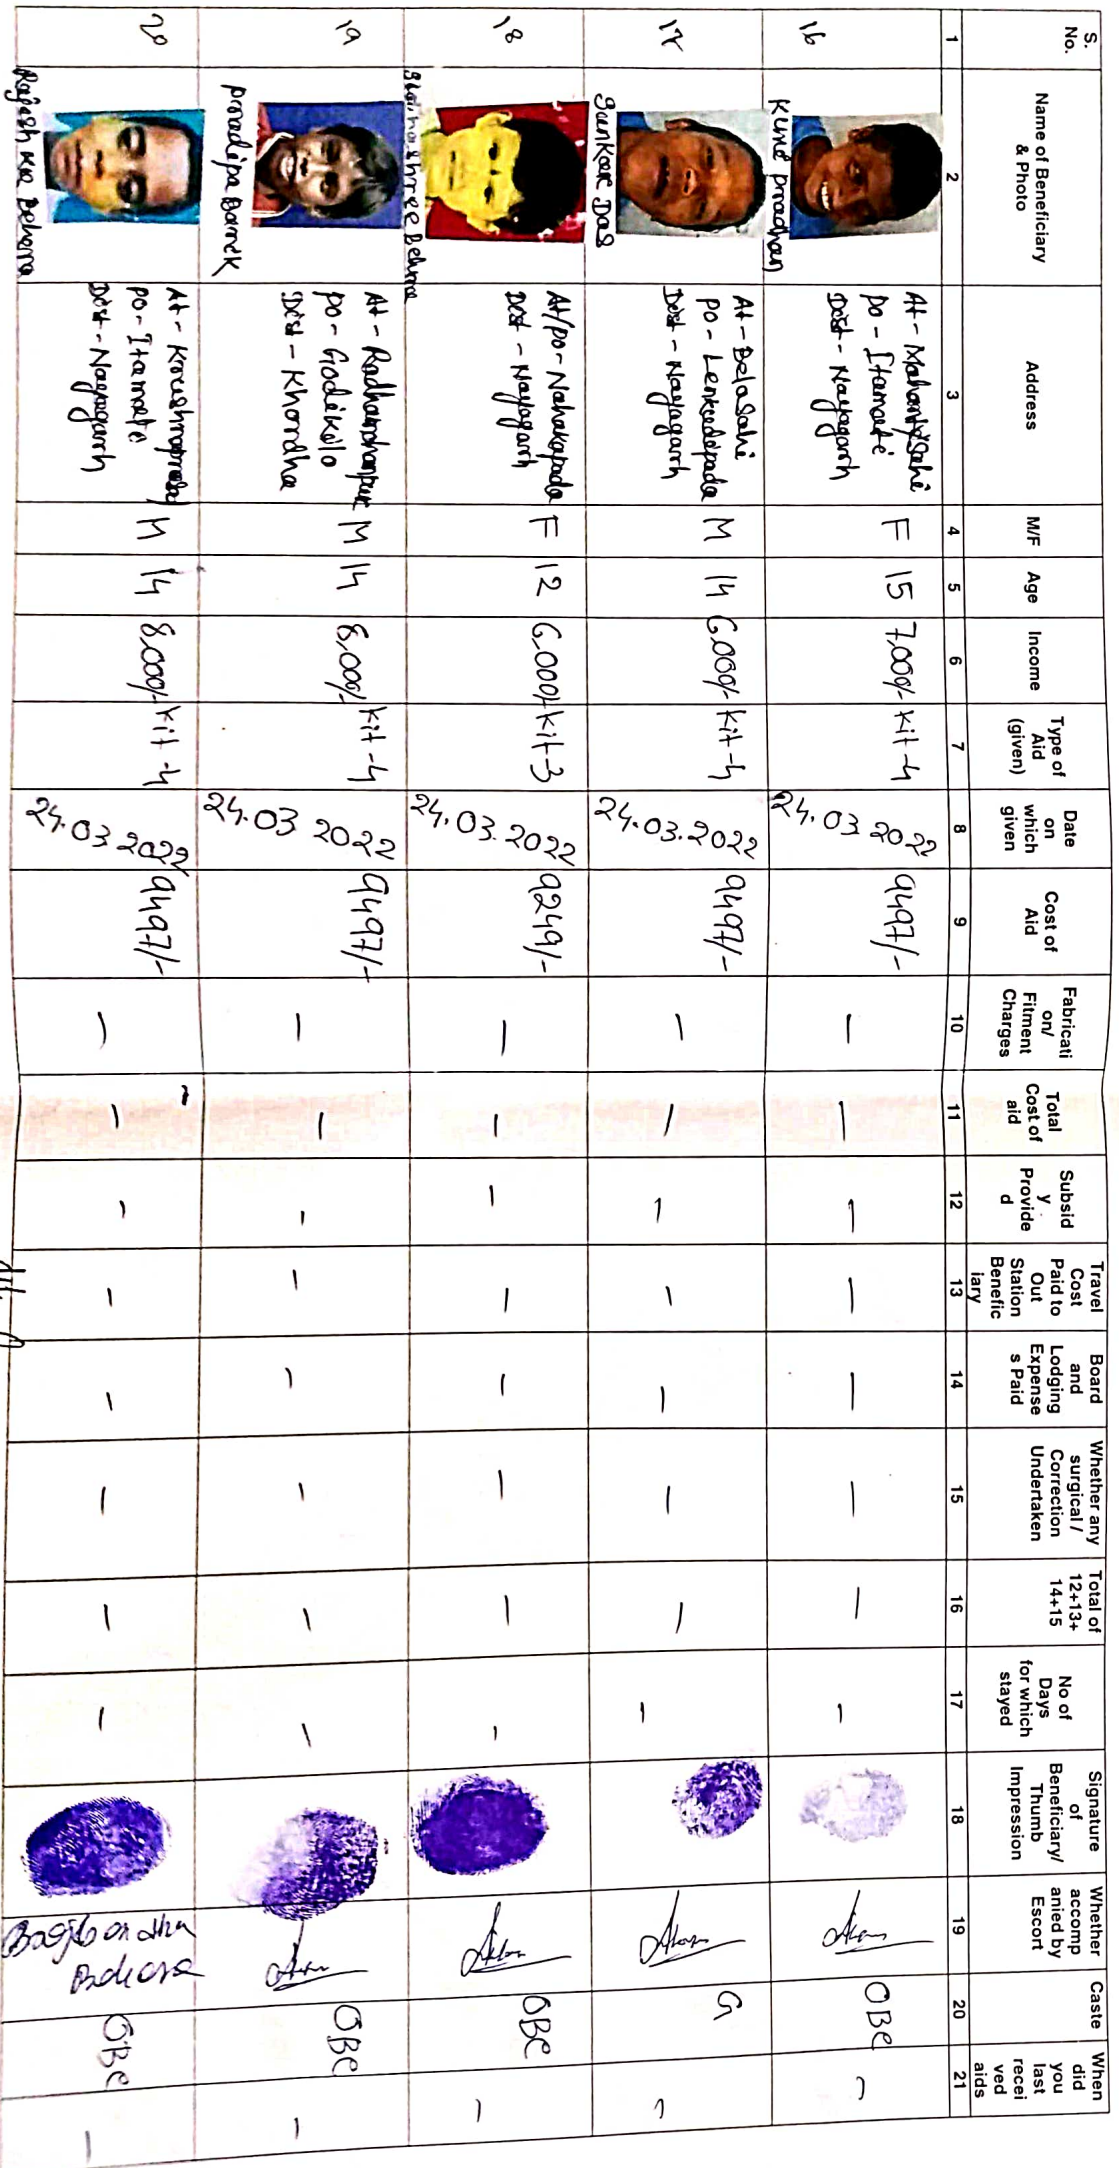 S. No. Name of Beneficiary & Photo Address M/F Age Income Type of Aid (given) Date on which given Cost of Aid Fabricati on/ Fitment Charges Total Cost of aid Subsid y Provide d Travel Cost Paid to Out Station Benefic iary Board and Lodging Expense s Paid Whether any surgical / Correction Undertaken Total of 12+13+ 14+15 No of Days for which stayed Signature of Beneficiary/ Thumb Impression Whether accomp anied by Escort Caste When did you last recei ved aids
1 2 3 4 5 6 7 8 9 10 11 12 13 14 15 16 17 18 19 20 21
16 Kuni pradhan
At - Mahantysahi
Po - Itamati
Dist - Nayagarh
F 15 7,000/- Kit-4 24.03 2022 9497/- — — — — — — — — OBC —
17 Sankar Das
At - Belasahi
Po - Lenkudipada
Dist - Nayagarh
M 14 6,000/- Kit-4 24.03.2022 9497/- — — — — — — — — G —
18 Behera
At/po - Nahakapada
Dist - Nayagarh
F 12 6,000/- Kit-3 24.03.2022 9249/- — — — — — — — — OBC —
19 pradipa Barik
At - Radhamohanpur
po - Godikilo
Dist - Khordha
M 14 8,000/- Kit-4 24.03 2022 9497/- — — — — — — — — OBC —
20 Rajesh Ku Behera
At - Krushnaprasad
Po - Itamati
Dist - Nayagarh
M 14 8,000/- Kit-4 24.03 2022 9497/- — — — — — — — — OBC —